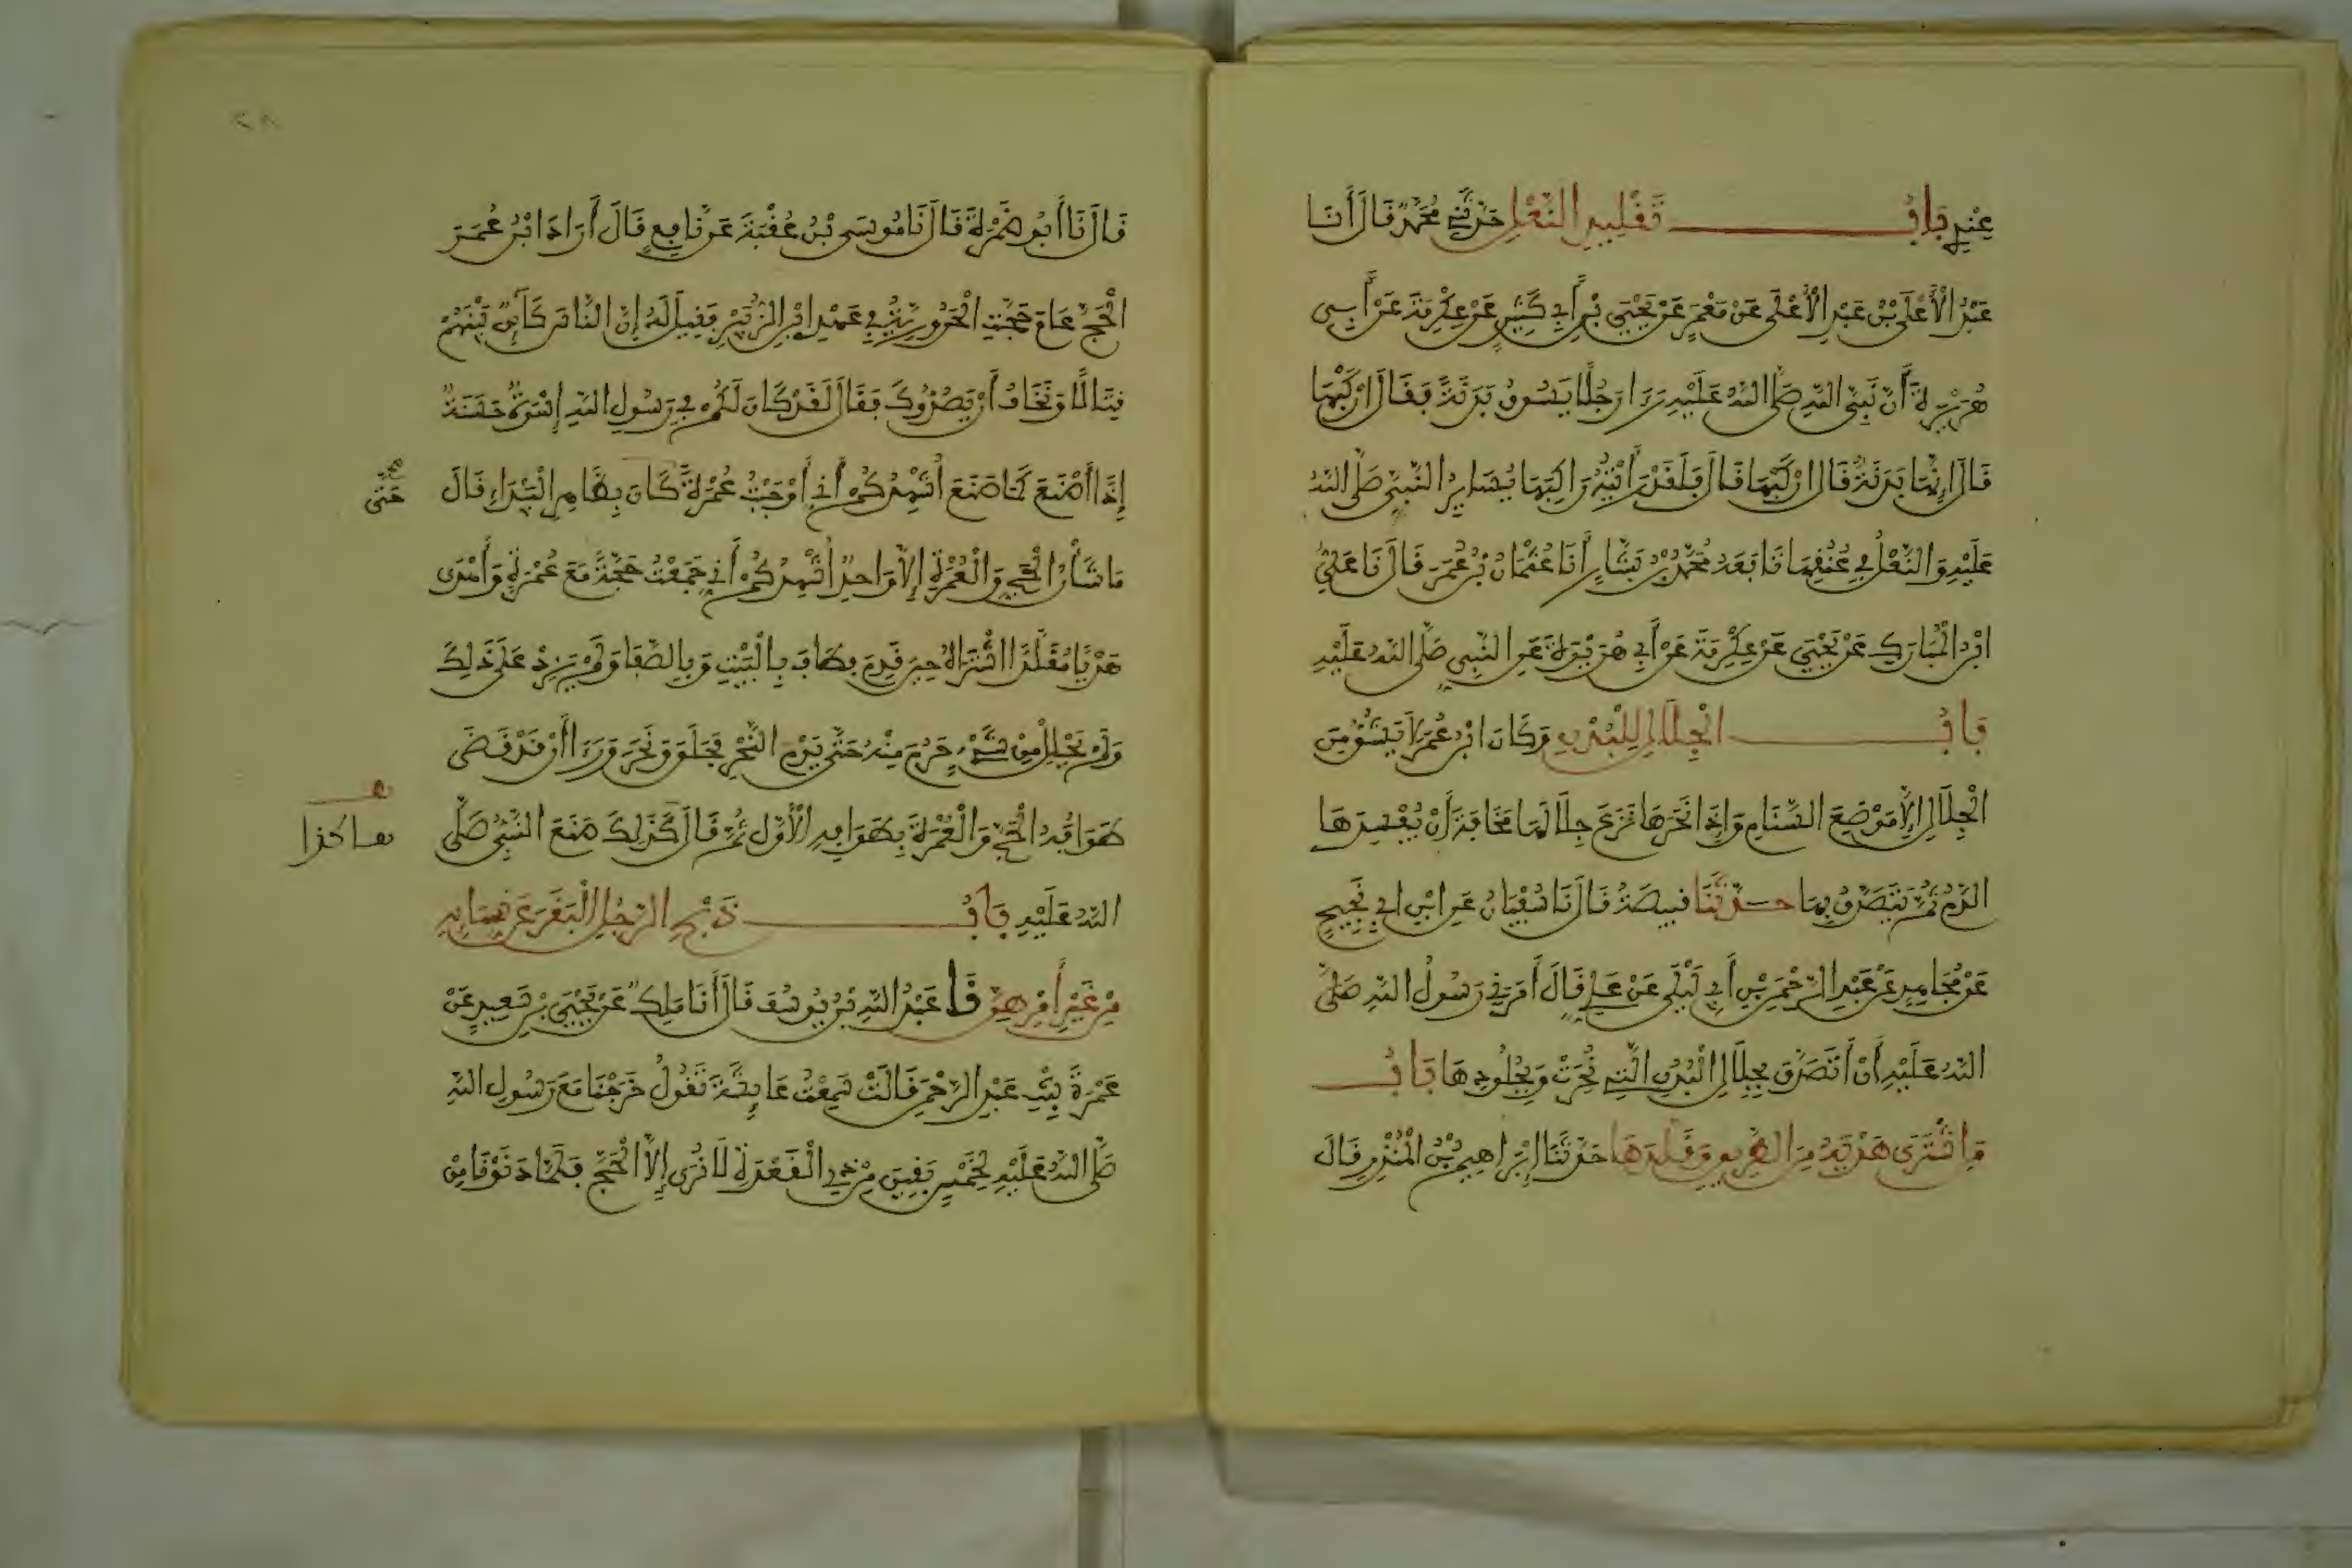 عِنْدِي بَابُ تَقْلِيدِ النَّعْلِ حَدَّثَنِي مُحَمَّدٌ قَالَ أَنَا
عَبْدُ الْأَعْلَى بْنُ عَبْدِ الْأَعْلَى عَنْ مَعْمَرٍ عَنْ يَحْيَى بْنِ أَبِي كَثِيرٍ عَنْ عِكْرِمَةَ عَنْ أَبِي
هُرَيْرَةَ أَنَّ نَبِيَّ اللَّهِ صَلَّى اللَّهُ عَلَيْهِ رَءَا رَجُلًا يَسُوقُ بَدَنَةً فَقَالَ ارْكَبْهَا
قَالَ إِنَّهَا بَدَنَةٌ قَالَ ارْكَبْهَا قَالَ فَلَقَدْ رَأَيْتُهُ رَاكِبَهَا يُسَايِرُ النَّبِيَّ صَلَّى اللَّهُ
عَلَيْهِ وَالنَّعْلُ فِي عُنُقِهَا تَابَعَهُ مُحَمَّدُ بْنُ بَشَّارٍ أَنَا عُثْمَانُ بْنُ عُمَرَ قَالَ نَا عَلِيُّ
ابْنُ الْمُبَارَكِ عَنْ يَحْيَى عَنْ عِكْرِمَةَ عَنْ أَبِي هُرَيْرَةَ عَنِ النَّبِيِّ صَلَّى اللَّهُ عَلَيْهِ
بَابُ الْجِلَالِ لِلْبُدْنِ وَكَانَ ابْنُ عُمَرَ لَا يَشُقُّ مِنَ
الْجِلَالِ إِلَّا مَوْضِعَ السَّنَامِ وَإِذَا نَحَرَهَا نَزَعَ جِلَالَهَا مَخَافَةَ أَنْ يُفْسِدَهَا
الدَّمُ ثُمَّ يَتَصَدَّقُ بِهَا حَدَّثَنَا قَبِيصَةُ قَالَ نَا سُفْيَانُ عَنِ ابْنِ أَبِي نَجِيحٍ
عَنْ مُجَاهِدٍ عَنْ عَبْدِ الرَّحْمَنِ بْنِ أَبِي لَيْلَى عَنْ عَلِيٍّ قَالَ أَمَرَنِي رَسُولُ اللَّهِ صَلَّى
اللَّهُ عَلَيْهِ أَنْ أَتَصَدَّقَ بِجِلَالِ الْبُدْنِ الَّتِي نُحِرَتْ وَبِجُلُودِهَا بَابُ
مَنِ اشْتَرَى هَدْيَهُ مِنَ الطَّرِيقِ وَقَلَّدَهَا حَدَّثَنَا إِبْرَاهِيمُ بْنُ الْمُنْذِرِ قَالَ
٢٨
قَالَ نَا أَبُو ضَمْرَةَ قَالَ نَا مُوسَى بْنُ عُقْبَةَ عَنْ نَافِعٍ قَالَ أَرَادَ ابْنُ عُمَرَ
الْحَجَّ عَامَ حَجَّتِ الْحَرُورِيَّةُ فِي عَهْدِ ابْنِ الزُّبَيْرِ فَقِيلَ لَهُ إِنَّ النَّاسَ كَائِنٌ بَيْنَهُمْ
قِتَالًا وَنَخَافُ أَنْ يَصُدُّوكَ فَقَالَ لَقَدْ كَانَ لَكُمْ فِي رَسُولِ اللَّهِ إِسْوَةٌ حَسَنَةٌ
إِذًا أَصْنَعَ كَمَا صَنَعَ أُشْهِدُكُمْ أَنِّي أَوْجَبْتُ عُمْرَةً كَانَ بِظَاهِرِ الْبَيْدَاءِ قَالَ
حَتَّى
مَا شَأْنُ الْحَجِّ وَالْعُمْرَةِ إِلَّا وَاحِدٌ أُشْهِدُكُمْ أَنِّي جَمَعْتُ حَجَّةً مَعَ عُمْرَةٍ وَأَهْدَى
هَدْيًا مُقَلَّدًا اشْتَرَاهُ حِينَ قَدِمَ فَطَافَ بِالْبَيْتِ وَبِالصَّفَا وَلَمْ يَزِدْ عَلَى ذَلِكَ
وَلَمْ يَحْلِلْ مِنْ شَيْءٍ حَرُمَ مِنْهُ حَتَّى يَوْمِ النَّحْرِ فَحَلَقَ وَنَحَرَ وَرَءَا أَنْ قَدْ قَضَى
طَوَافَهُ الْحَجَّ وَالْعُمْرَةَ بِطَوَافِهِ الْأَوَّلِ ثُمَّ قَالَ كَذَلِكَ صَنَعَ النَّبِيُّ صَلَّى
هاكذا
اللَّهُ عَلَيْهِ بَابُ ذَبْحِ الرَّجُلِ الْبَقَرَ عَنْ نِسَائِهِ
مِنْ غَيْرِ أَمْرِهِنَّ نَا عَبْدُ اللَّهِ بْنُ يُوسُفَ قَالَ أَنَا مَلِكٌ عَنْ يَحْيَى بْنِ سَعِيدٍ عَنْ
عَمْرَةَ بِنْتِ عَبْدِ الرَّحْمَنِ قَالَتْ سَمِعْتُ عَائِشَةَ تَقُولُ خَرَجْنَا مَعَ رَسُولِ اللَّهِ
صَلَّى اللَّهُ عَلَيْهِ لِخَمْسٍ بَقِينَ مِنْ ذِي الْقَعْدَةِ لَا نُرَى إِلَّا الْحَجَّ فَلَمَّا دَنَوْنَا مِنْ